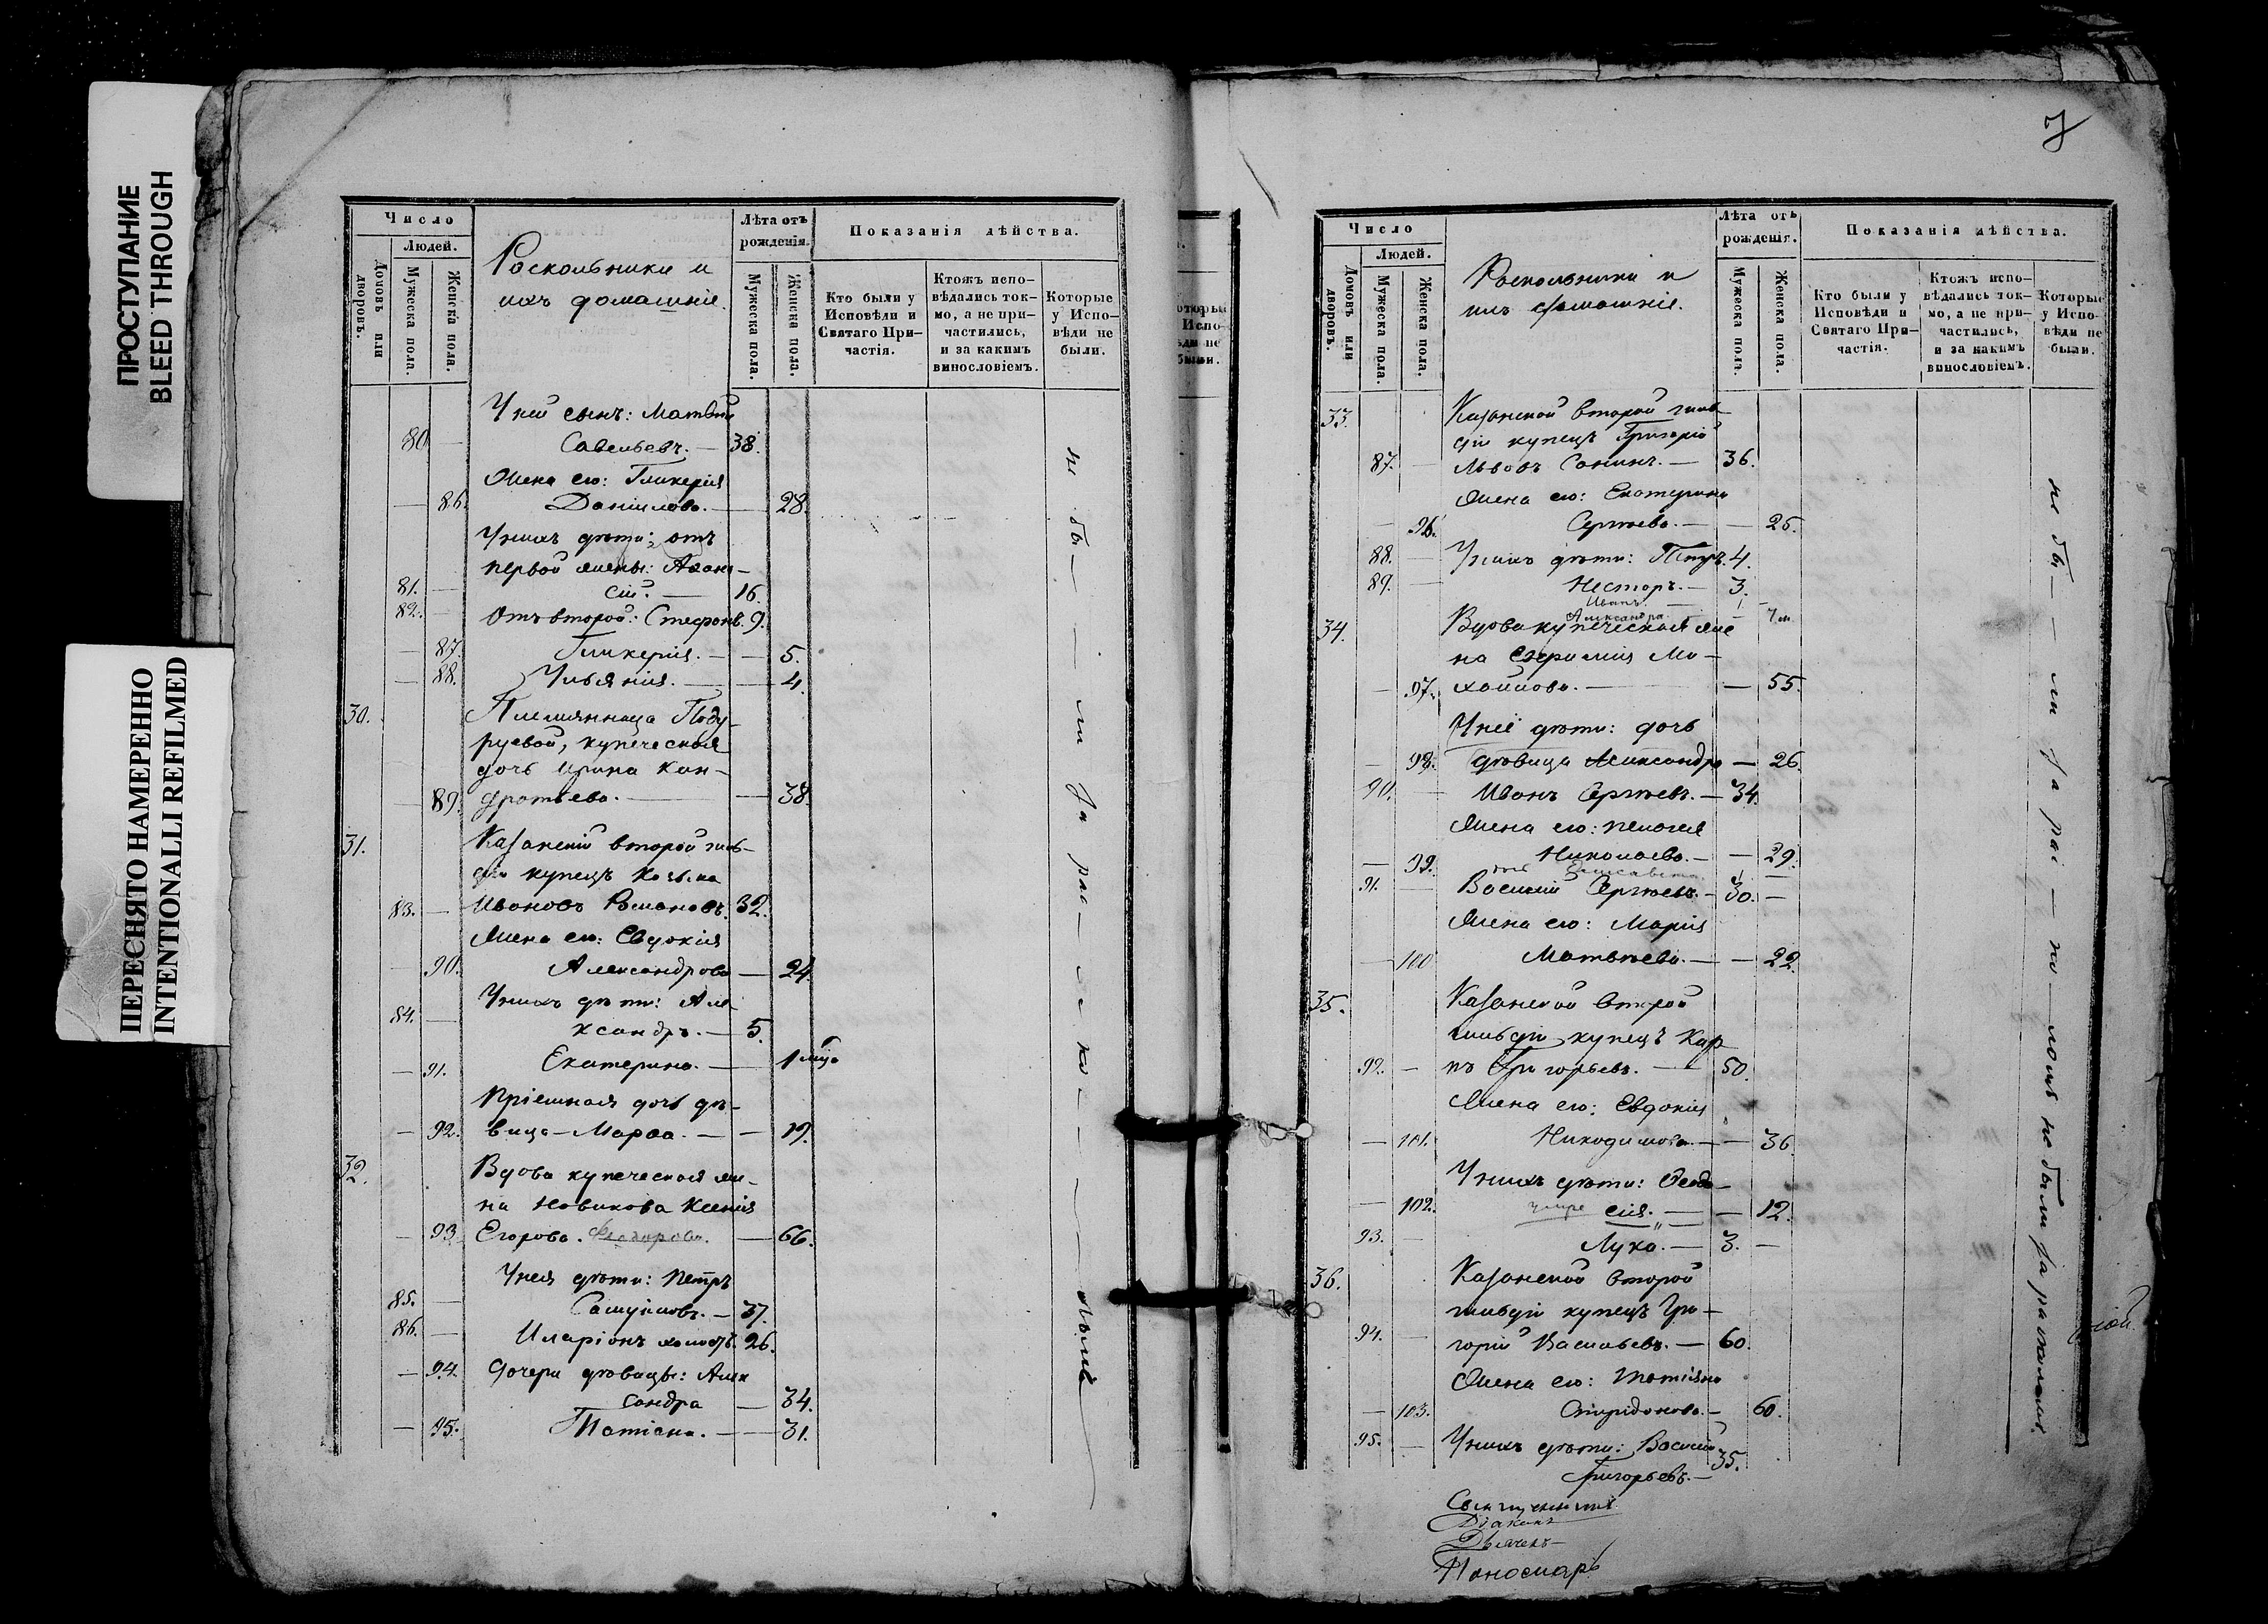 ПРОСТУПАНИЕ
BLEED THROUGH
ПЕРЕСНЯТО НАМЕРЕННО
INTENTIONALLI REFILMED
Число
Людей.
Домовъ или дворовъ.
Мужеска пола.
Женска пола.
Роскольники и
ихъ домашніе.
Лѣта отъ
рожденія.
Мужеска пола.
Женска пола.
Показанія дѣйства.
Кто были у
Исповѣди и
Святаго При-
частія.
Ктожъ испо-
вѣдались ток-
мо, а не при-
частились,
и за какимъ
винословіемъ.
Которые
у Испо-
вѣди не
были.
У ней сынъ: Матвей
80 — Савельевъ. — 38.
Жена его: Гликерія
— 86. Даніилова. — 28.
У нихъ дѣти: отъ
первой жены: Афана-
81. — сій. — 16.
82. — Отъ второй: Стефанъ. 9.
— 87. Гликерія. — — 5.
— 88. Ульянія. — 4.
30. Племянница Поду-
руевой, купеческая
дочь Ирина Кон-
— 89. дратьева. — — 38.
31. Казанскій второй гиль-
діи купецъ Козьма
83. — Ивановъ Романовъ. 32.
Жена его: Евдокія
— 90. Александрова — 24.
У нихъ дѣти: Але-
84. — ксандръ. — 5.
— 91. Екатерина. — 1
Пріемная дочь дѣ-
— 92. вица — Марѳа. — — 19.
32. Вдова купеческая же-
на Новикова Ксенія
— 93. Егорова. Ѳеодорова. — 66.
У нея дѣти: Петръ
85. — Самуиловъ. — 37.
86. — Иларіонъ холостъ. 26.
— 94. Дочери дѣвицы: Алек
сандра — 34.
— 95. Татіана. — — 31.
не бы — — ли за рас — — ко — — ломъ
7
Число
Людей.
Домовъ или дворовъ.
Мужеска пола.
Женска пола.
Роскольники и
ихъ домашніе.
Лѣта отъ
рожденія.
Мужеска пола.
Женска пола.
Показанія дѣйства.
Кто были у
Исповѣди и
Святаго При-
частія.
Ктожъ испо-
вѣдались ток-
мо, а не при-
частились,
и за какимъ
винословіемъ.
Которые
у Испо-
вѣди не
были.
33. Казанской второй гиль-
діи купецъ Григорій
87. — Львовъ Санинъ. — 36.
Жена его: Екатерина
— 96. Сергѣева. — — 25.
88. — У нихъ дѣти: Петръ. 4.
89. — Несторъ. — 3.
Иванъ. — 1
Александра — 7 м.
34. Вдова купеческая же
на Евфимія Ми-
— 97. хайлова. — — 55.
У неё дѣти: дочь
— 98. дѣвица Александра — 26.
90. — Иванъ Сергѣевъ. — 34.
Жена его: Пелагея
— 99. Николаева. — — 29.
Елисавета. 1
91. — Василій Сергѣевъ. — 30. —
Жена его: Марія
— 100 Матвѣева. — — 22.
35. Казанской второй
гильдіи купецъ Кар
92. — пъ Григорьевъ. — 50.
Жена его: Евдокія
— 101. Никодимова. — — 36
У нихъ дѣти: Ѳеодо-
— 102. умре сія. — — 12.
93. — Лука. — 3. —
36. Казанской второй
гильдіи купецъ Гри-
94. — горій Васильевъ. — 60.
Жена его: Татіяна
— 103. Спиридонова. — 60.
95. — У нихъ дѣти: Василій
Григорьевъ. — 35.
не бы — — ли за рас — ко — ломъ не были за расколомъ.
Священникъ
Діаконъ
Дьячекъ
Пономарь